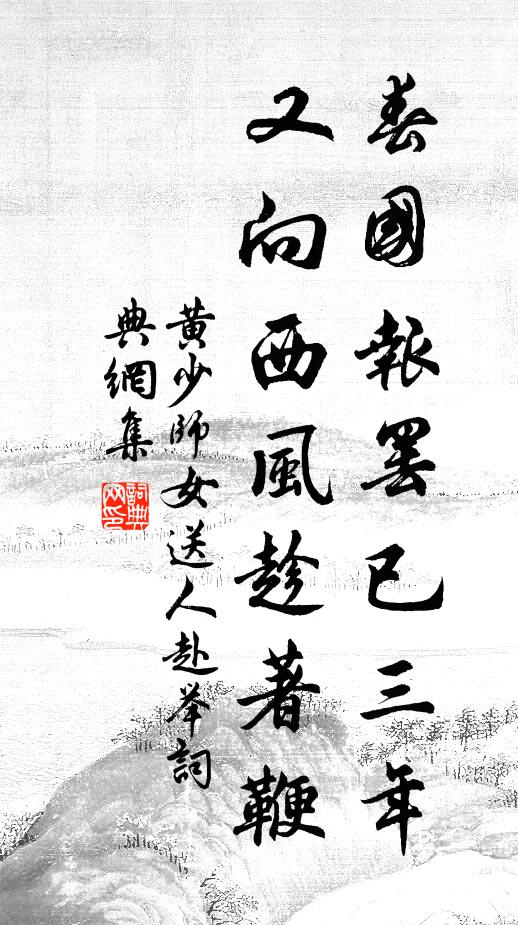 春國報罷已三年
又向西風趁著鞭
黃少師女送人赴举詞
典網集
詞典網印